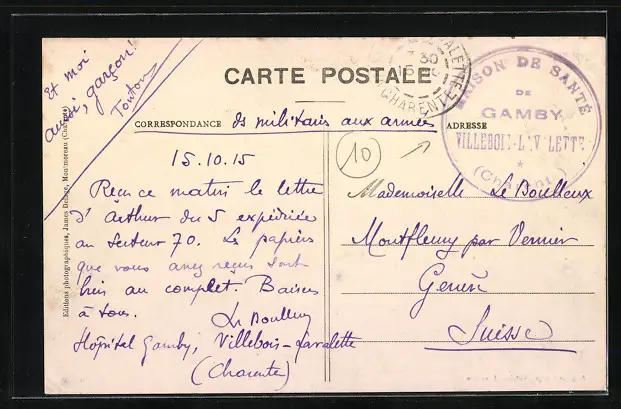 Et moi
aussi, garçon!
Tonton
CARTE POSTALE
CORRESPONDANCE ds militaires aux armées
ADRESSE
15.10.15
Reçu ce matin la lettre
d'Arthur du 5 expédiée
au secteur 70. Les papiers
que vous avez reçus sont
bien au complet. Baisers
à tous.
Le Boulleux
Hôpital Gamby, Villebois-Lavalette
(Charente)
10
Mademoiselle Le Boulleux
Montfleury par Vernier
Genève
Suisse
MAISON DE SANTÉ
DE
GAMBY
VILLEBOIS-LAVALETTE
(Charente)
LAVALETTE
30
CHARENTE
Editions photographiques, James Montmoreau (Charente)